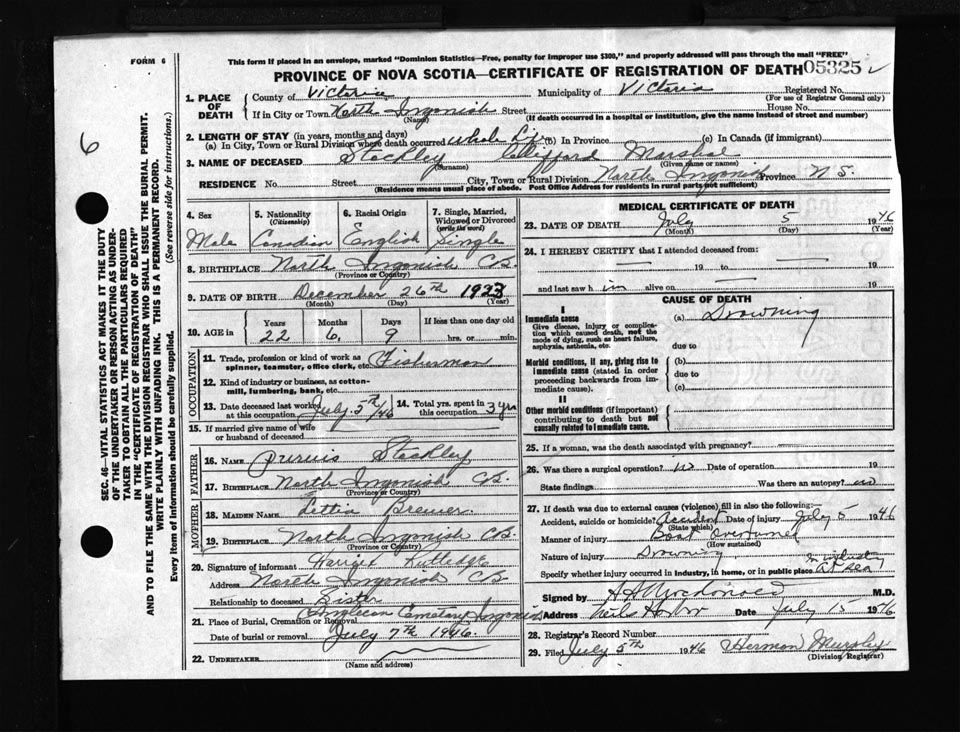 FORM 6
This form if placed in an envelope, marked "Dominion Statistics—Free, penalty for improper use $300," and properly addressed will pass through the mail "FREE"
PROVINCE OF NOVA SCOTIA—CERTIFICATE OF REGISTRATION OF DEATH 05325
6
SEC. 46—VITAL STATISTICS ACT MAKES IT THE DUTY
OF THE UNDERTAKER OR PERSON ACTING AS UNDER-
TAKER TO OBTAIN ALL THE PARTICULARS REQUIRED
IN THE "CERTIFICATE OF REGISTRATION OF DEATH"
AND TO FILE THE SAME WITH THE DIVISION REGISTRAR WHO SHALL ISSUE THE BURIAL PERMIT.
WRITE PLAINLY WITH UNFADING INK. THIS IS A PERMANENT RECORD.
Every item of information should be carefully supplied. (See reverse side for instructions.)
1. PLACE OF DEATH
County of Victoria Municipality of Victoria Registered No.
(For use of Registrar General only)
If in City or Town North Ingonish Street
(Name) (If death occurred in a hospital or institution, give the name instead of street and number)
2. LENGTH OF STAY (in years, months and days)
(a) In City, Town or Rural Division where death occurred Whole Life (b) In Province (c) In Canada (if immigrant)
3. NAME OF DECEASED Stockley Clifford Marshal
(Surname) (Given name or names)
RESIDENCE No. Street City, Town or Rural Division North Ingonish Province N S.
(Residence means usual place of abode. Post Office Address for residents in rural parts not sufficient)
4. Sex Male
5. Nationality (Citizenship) Canadian
6. Racial Origin English
7. Single, Married, Widowed or Divorced (write the word) Single
8. BIRTHPLACE North Ingonish CB.
(Province or Country)
9. DATE OF BIRTH December 26th 1923
(Month) (Day) (Year)
10. AGE in Years 22 Months 6 Days 9 If less than one day old hrs. or min.
OCCUPATION
11. Trade, profession or kind of work as spinner, teamster, office clerk, etc. Fisherman
12. Kind of industry or business, as cotton-mill, lumbering, bank, etc.
13. Date deceased last worked at this occupation July 5th/46
14. Total yrs. spent in this occupation 3 yrs
15. If married give name of wife or husband of deceased
FATHER
16. NAME Purvis Stockley
17. BIRTHPLACE North Ingonish CB.
(Province or Country)
MOTHER
18. MAIDEN NAME Lettia Brewer
19. BIRTHPLACE North Ingonish CB.
(Province or Country)
20. Signature of informant Rutledge
Address North Ingonish CB
Relationship to deceased Sister
21. Place of Burial, Cremation or Removal Anglican Cemetary Ingonish
Date of burial or removal July 7th 1946.
22. UNDERTAKER
(Name and address)
MEDICAL CERTIFICATE OF DEATH
23. DATE OF DEATH July 5 1946
(Month) (Day) (Year)
24. I HEREBY CERTIFY that I attended deceased from:
19 to 19
and last saw h im alive on 19
CAUSE OF DEATH
I
Immediate cause (a) Drowning
Give disease, injury or complication which caused death, not the mode of dying, such as heart failure, asphyxia, asthenia, etc.
due to
Morbid conditions, if any, giving rise to immediate cause (stated in order proceeding backwards from immediate cause).
(b)
due to
(c)
II
Other morbid conditions (if important) contributing to death but not causally related to immediate cause.
25. If a woman, was the death associated with pregnancy?
26. Was there a surgical operation? no Date of operation 19
State findings Was there an autopsy? no
27. If death was due to external causes (violence) fill in also the following:
Accident, suicide or homicide? Accident Date of injury July 5 1946
(State which)
Manner of injury Boat Overturned
(How sustained)
Nature of injury Drowning
Specify whether injury occurred in industry, in home, or in public place in industry at sea
Signed by M.D.
Address Neils Harbor Date July 15 1946
28. Registrar's Record Number
29. Filed July 5th 1946 Herman Murphy
(Division Registrar)